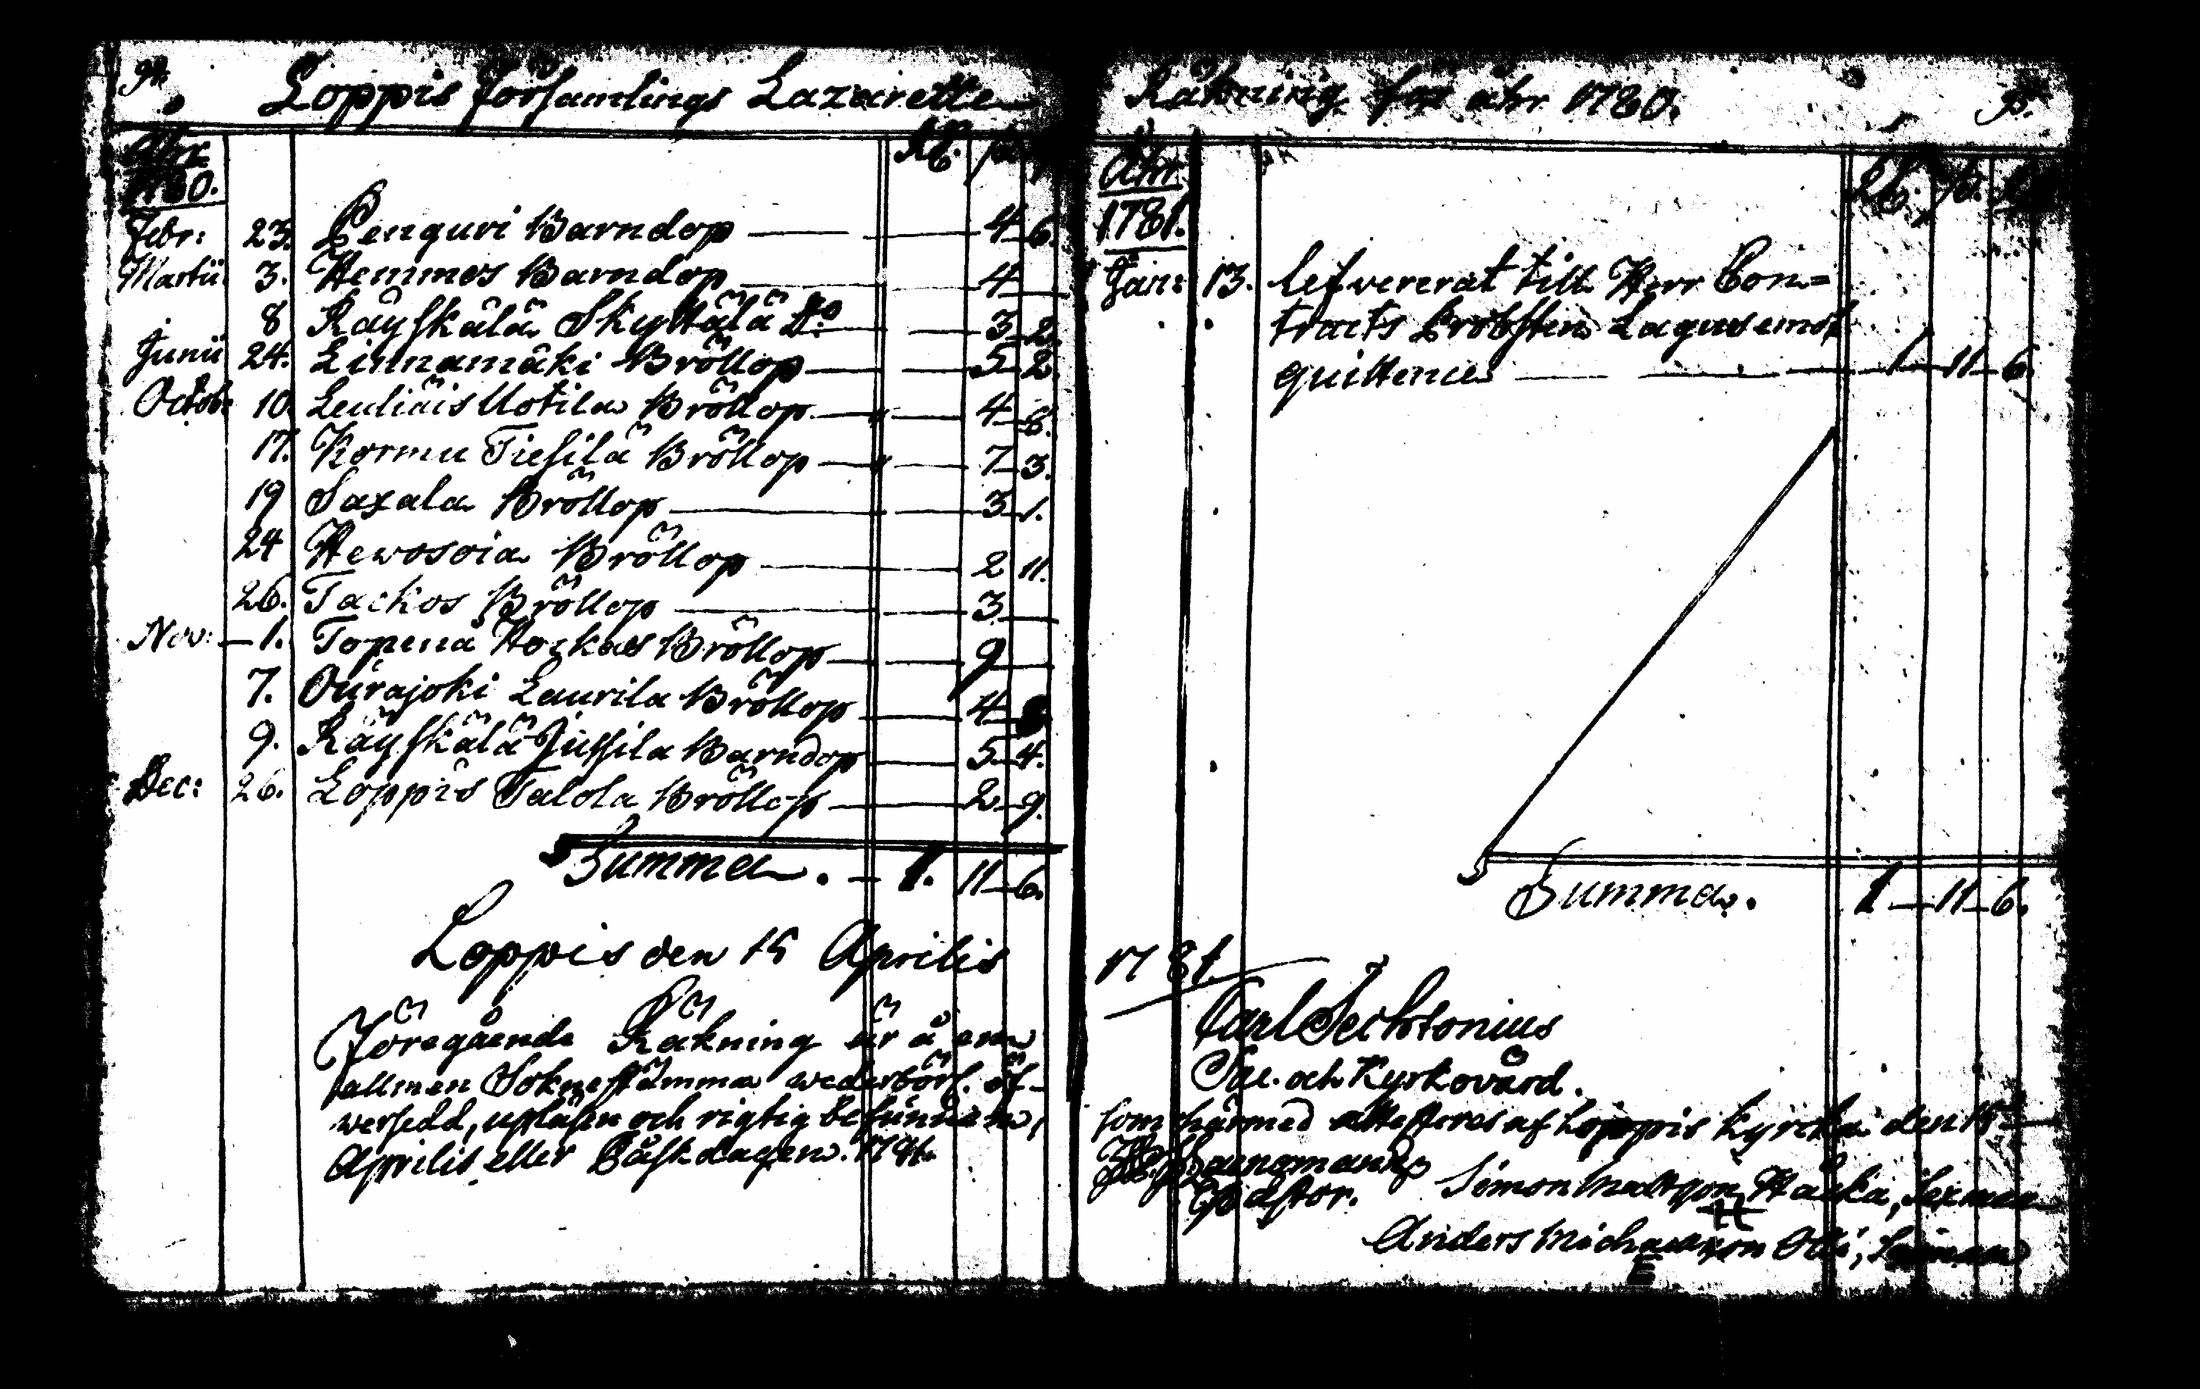 94.
Loppis Församlings Lazarette
Åhr
1780.
Febr: 23. Penguri Barndop 4 6.
Martii 3. Hemmes Barndop 4
8 Räyskälä Skyttälä Do 3 2.
Junii 24. Linnamäki Bröllop 5 2.
Octob: 10. Leuliäis Uotila Bröllop 4 8.
17. Kormu Tiesilä Bröllop 7 3.
19 Saxala Bröllop 3 1.
24 Hewosoia Bröllop 2 11.
26. Tackos Bröllop 3
Nov: 1. Topena Hockas Bröllop 9
7. Ourajoki Laurila Bröllop 4
9. Räyskälä Jussila Barndop 5 4.
Dec: 26. Loppis Talola Bröllop 2 9.
Summa. 1. 11 6.
Loppis den 15 Aprilis
Föregående Räkning är å en
allmen Sokne stämma wederbörl. öf-
wersedd, upläsen och rigtig befunnen,
Aprilis eller Påskdagen. 1781.
Räkning för åhr 1780.
95.
Åhr
1781.
Jan: 13. lefvererat till Herr Con-
tracts Probsten Lagus emot
quittence 1 11 6.
Summa. 1 11 6.
1781
Carl Sechstonius
Sac. och Kyrkovärd.
som härmed attesteres af Loppis Kyrcka den 15
Pastor. Simon Mattsson Håcka, Sexman
Anders Michaelsson Olli, Sexman